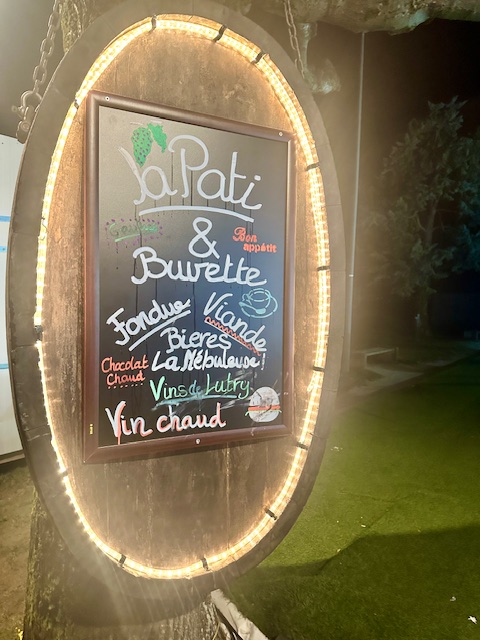 la Pati
&
Buvette
Bon
appétit
Fondue
Viande
Bieres
La Nébuleuse!
Chocolat
Chaud
Vins de Lutry
Vin chaud